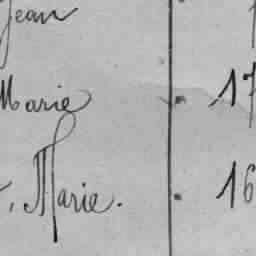 Jean
Marie 17
, Marie. 16